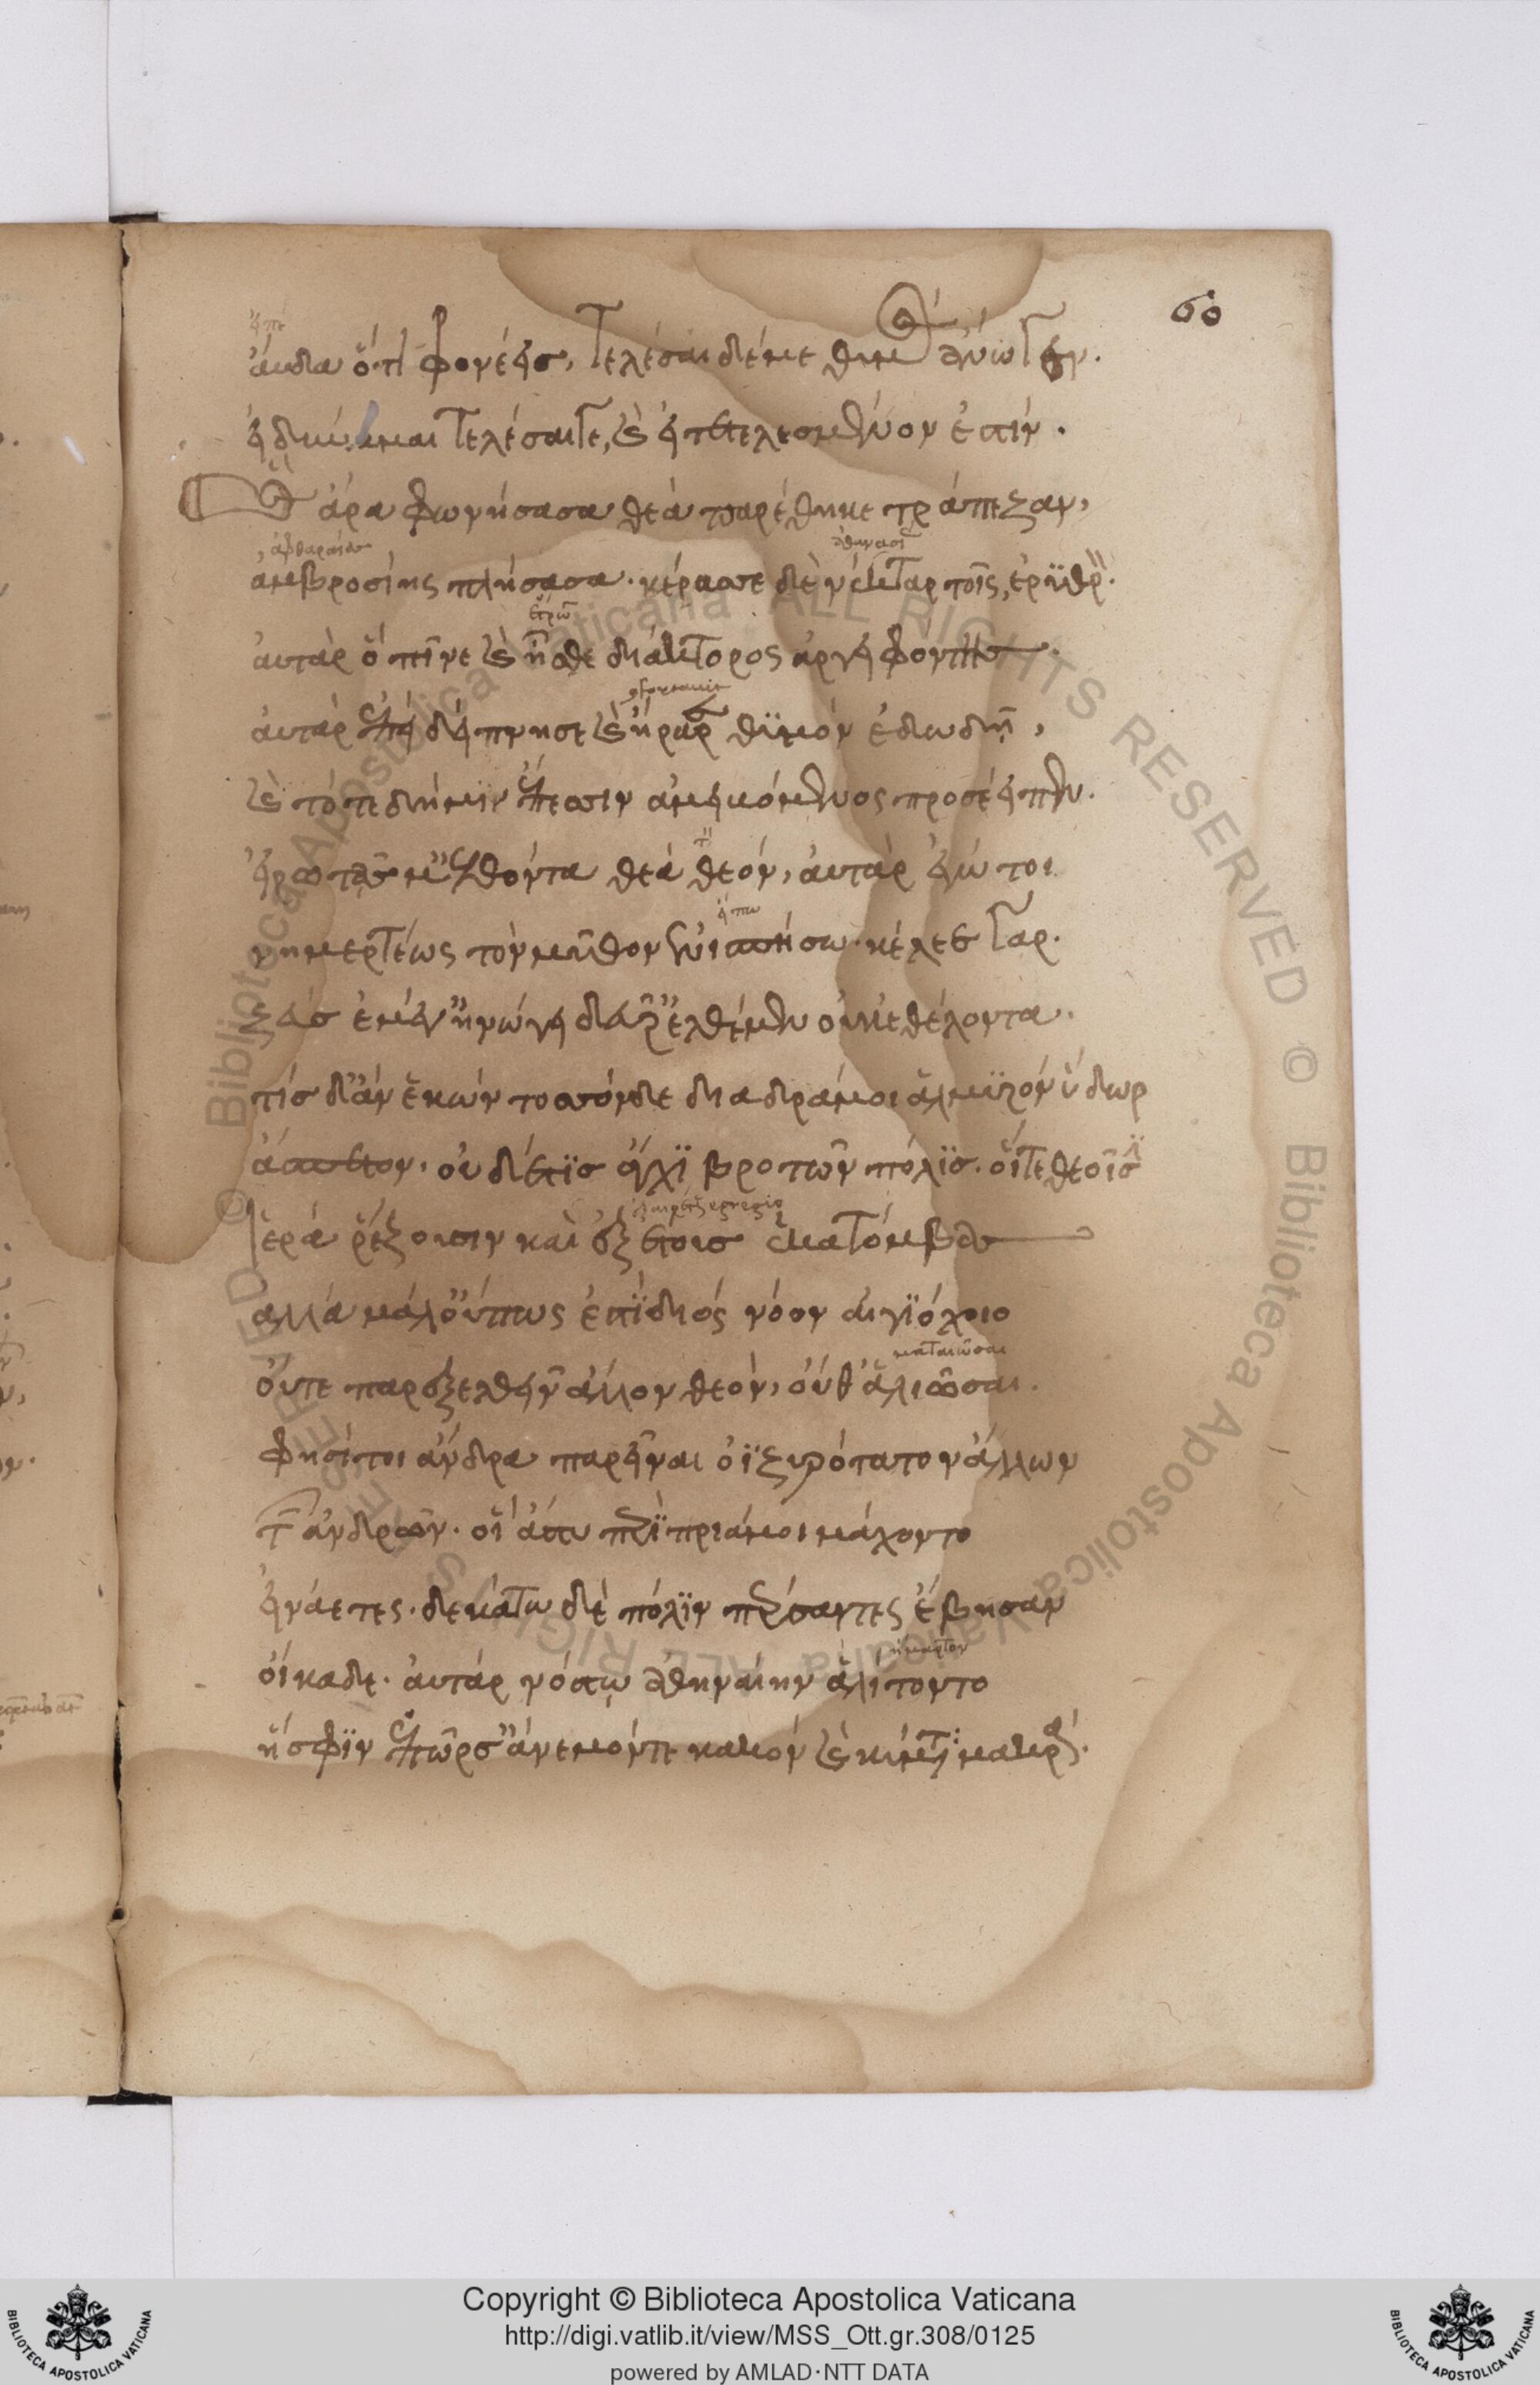 60
εἰπὲ
ἄυδα ὅτι φρονέεις, τελέσαι δέ με θυμὸς ἄνωγεν.
εἰ δύναμαι τελέσαι γε, καὶ εἰ τετελεσμένον ἐστίν.
Ὣς ἄρα φωνήσασα θεὰ παρέθηκε τράπεζαν,
ἀφθαρσίας
ἀμβροσίης πλήσασα. κέρασσε δὲ νέκταρ τοῖς, ἐρϋθρὸν.
ἔτρωγε
ἀυτὰρ ὃ πῖνε καὶ ἦσθε διάκτορος ἀργειφόντης.
ἀυτὰρ ἐπεὶ δείπνησε καὶ ἤραρε θϋμὸν ἐδωδῆ,
καὶ τότε δή μιν ἔπεσσιν ἀμειϐόμενος προσέειπεν.
εἰρωτᾶς μ' ἐλθόντα θεὰ θεόν, ἀυτὰρ ἐγώ τοι
εἴπω
νημερτέως τὸν μῦθον ἐνισπήσω. κέλεαι γαρ.
ζεὺς ἐμέ γ' ἠνώγει δεῦρ' ἐλθέμεν οὐκ ἐθέλοντα.
τίς δ' ἂν ἑκὼν τοσσόνδε διαδράμοι ἁλμϋρὸν ὕδωρ
ἄσπετον. οὐδέ τϊς ἄγχϊ βροτῶν πόλϊς. οἵ τε θεοῖσϊ
ἐξαιρέτους egregio
ἱερά ῥέζουσιν καὶ ἐξαίτους ἑκατόμβας
αλλὰ μάλ' οὔπως ἐστϊ διός νόον αἰγϊόχοιο
ματαιῶσαι
οὔτε παρεξελθεῖν ἄλλον θεόν, οὔθ' ἁλιῶσαι.
φησί τοι ἄνδρα παρεῖναι ὀϊζυρότατον ἄλλων
τῶν ἀνδρῶν. οἳ ἄστυ περϊ πριάμοι μάχοντο
εἰνάετες. δεκάτω δὲ πόλϊν πέρσαντες ἔβησαν
ἥμαρτον
οἴκαδε. ἀυτὰρ νόστω ἀθηναίην ἀλίτοντο
ἥ σφϊν ἐπῶρσ' ἄνεμόν τε κακὸν καὶ κύματα μακρά.
Copyright © Biblioteca Apostolica Vaticana
http://digi.vatlib.it/view/MSS_Ott.gr.308/0125
powered by AMLAD·NTT DATA